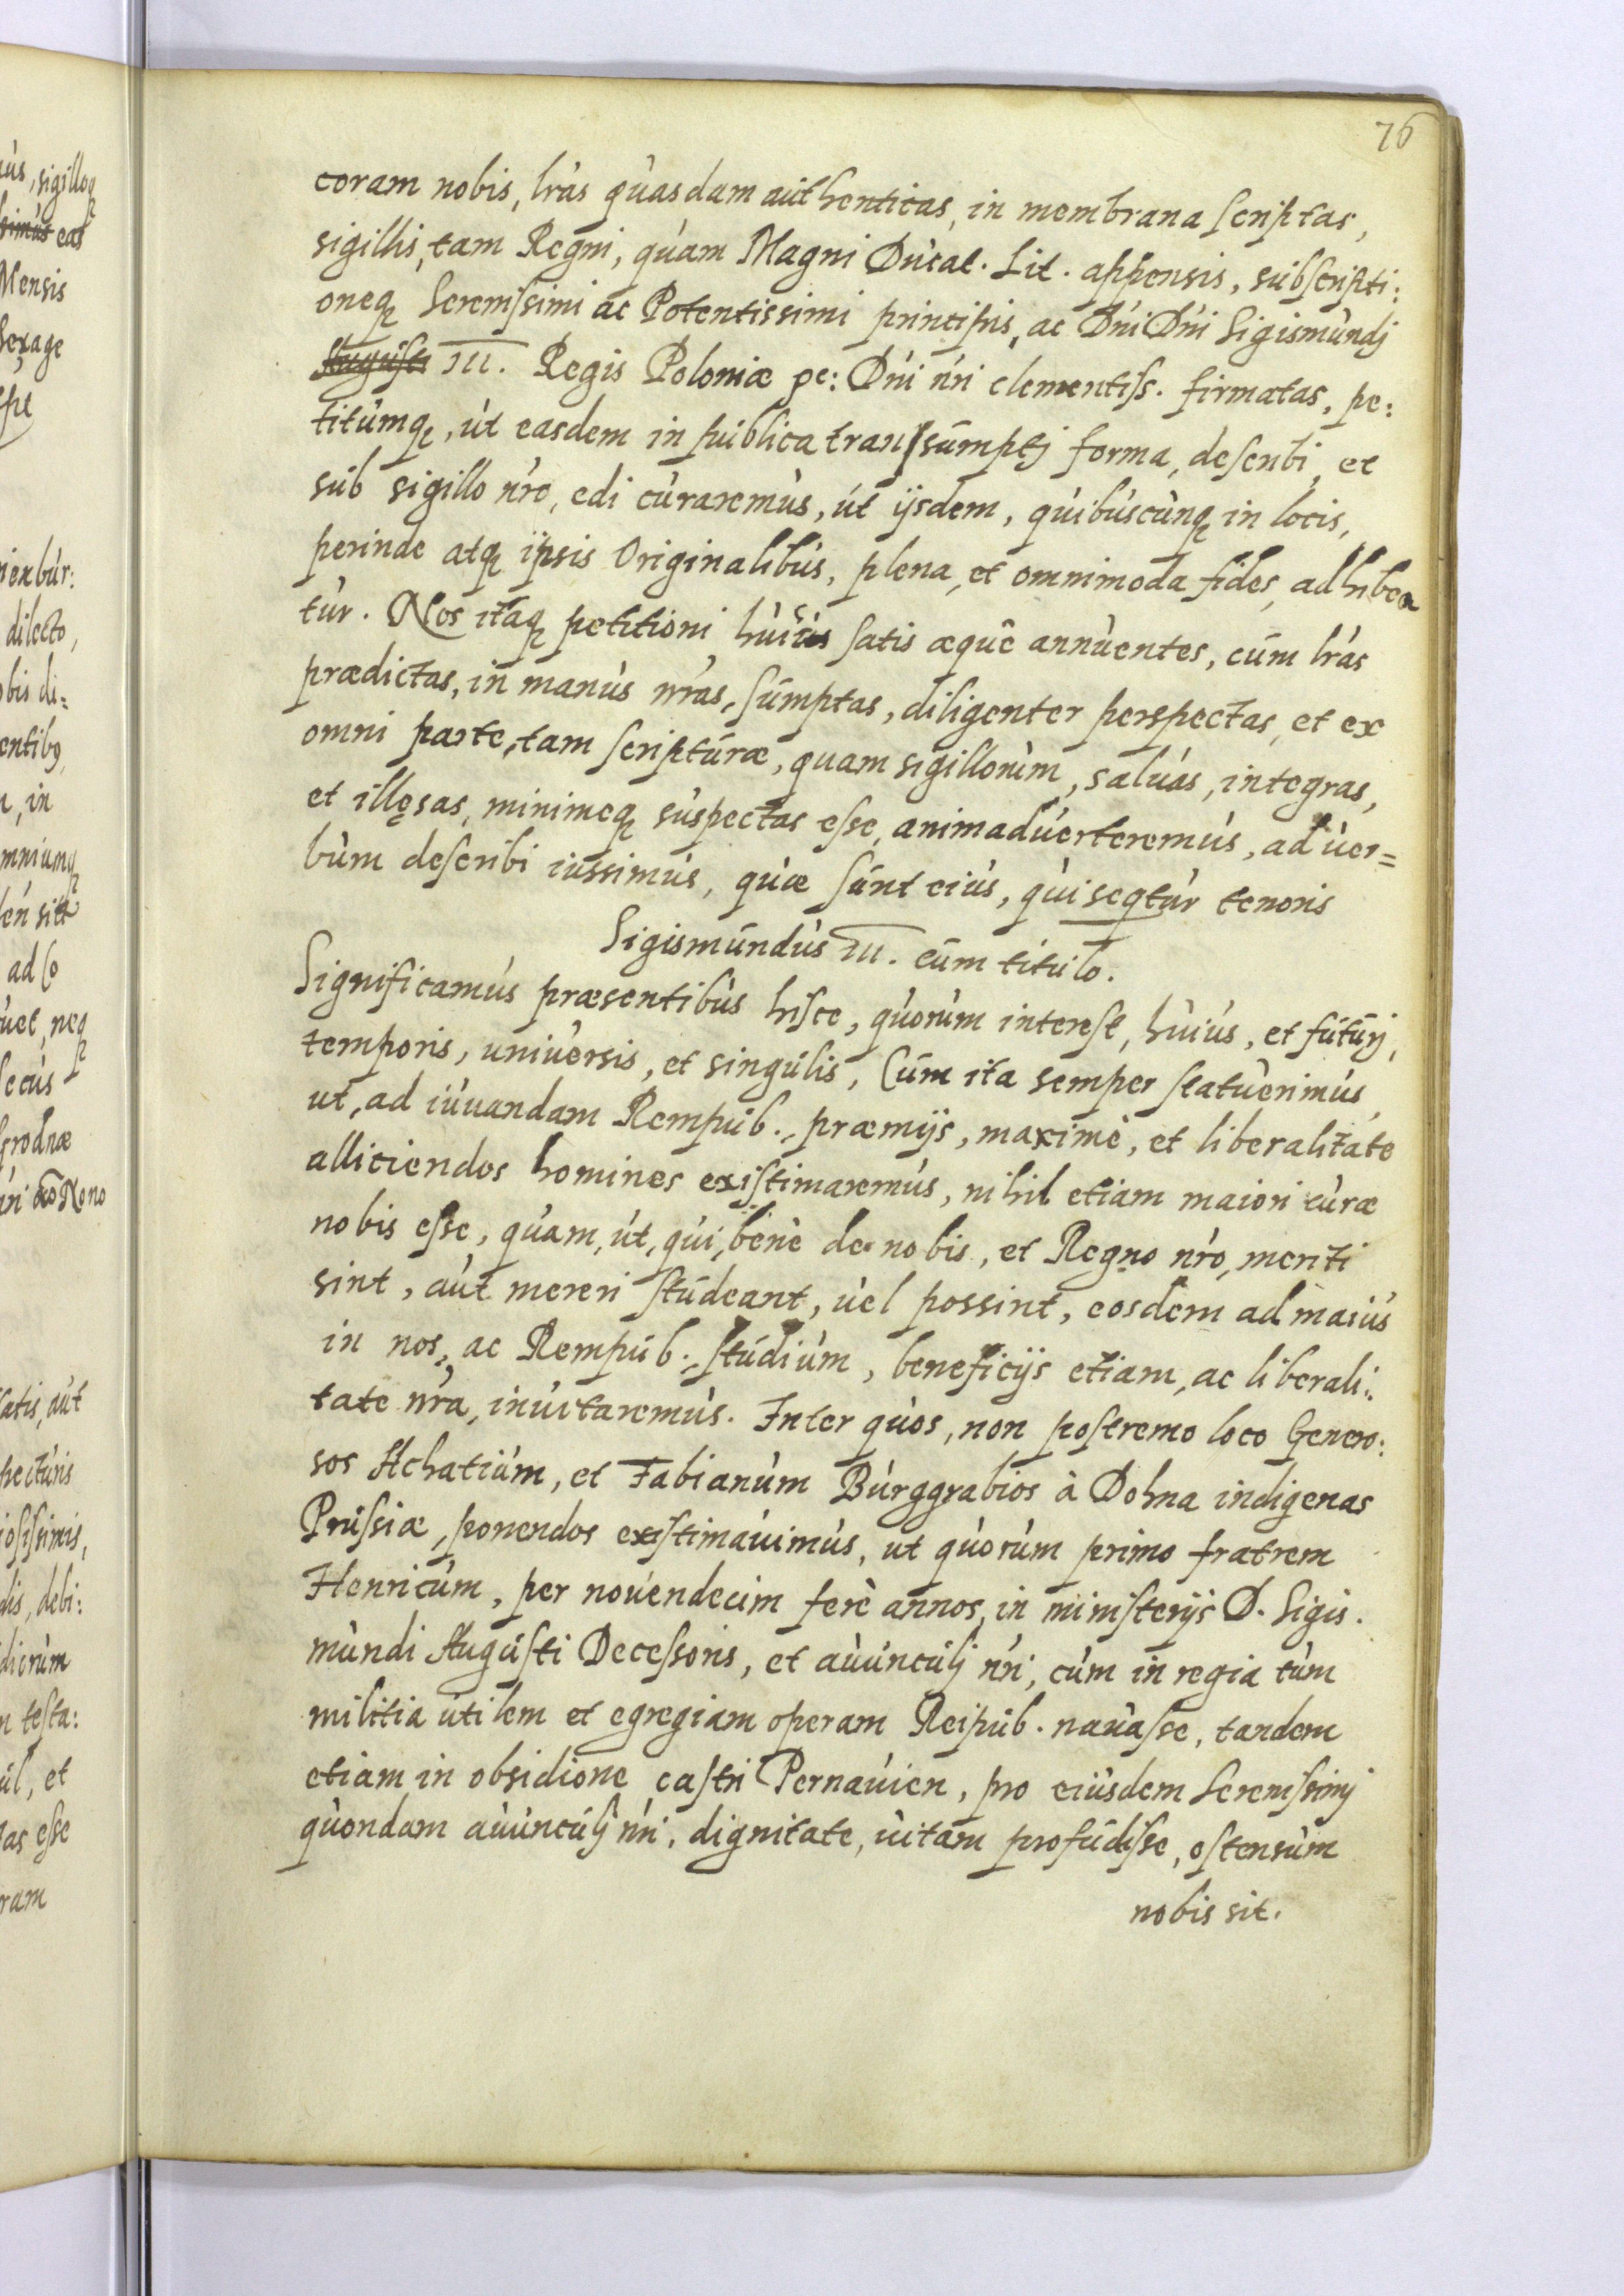 76
coram nobis, lras quasdam authenticas, in membrana scriptas,
sigillis, tam Regni, quam Magni Ducat. Lit. appensis, subscripti:
oneq Serenissimi ac Potentissimi principis, ac Dni Dni Sigismundj
Augusti III. Regis Poloniæ pe: Dni nri clementiss. firmatas, pe:
titumq, ut easdem in publica transsumptj forma, describi, et
sub sigillo nro, edi curaremus, ut ijsdem, quibuscunq in locis,
perinde atq ipsis Originalibus, plena, et omnimoda fides, adhibea
tur. Nos itaq petitioni huius satis æque annuentes, cum lras
prædictas, in manus nras, sumptas, diligenter perspectas, et ex
omni parte, tam scripturæ, quam sigillorum, saluas, integras,
et illęsas, minimeq suspectas esse, animaduerteremus, ad uer=
bum describi iussimus, quæ sunt eius, qui seqtur tenoris
Sigismundus III. cum titulo.
Significamus præsentibus hisce, quorum interest, huius, et futurj,
temporis, uniuersis, et singulis, Cum ita semper statuerimus,
ut, ad iuuandam Rempub., præmijs, maximè, et liberalitate
alliciendos homines existimaremus, nihil etiam maiori curæ
nobis esse, quam, ut, qui, benè de nobis, et Regno nro, meriti
sint, aut mereri studeant, uel possint, eosdem ad maius
in nos, ac Rempub. studium, beneficijs etiam, ac liberali:
tate nra, inuitaremus. Inter quos, non postremo loco Genero:
sos Achatium, et Fabianum Burggrabios à Dohna indigenas
Prussiæ, ponendos existimauimus, ut quorum primo fratrem
Henricum, per nouendecim ferè annos, in ministerijs D. Sigis.
mundi Augusti Decessoris, et auunculj nri, cum in regia tum
militia utilem et egregiam operam Reipub. nauasse, tandem
etiam in obsidione castri Pernauien, pro eiusdem Serenissimj
quondam auunculj nri, dignitate, uitam profudisse, ostensum
nobis sit.